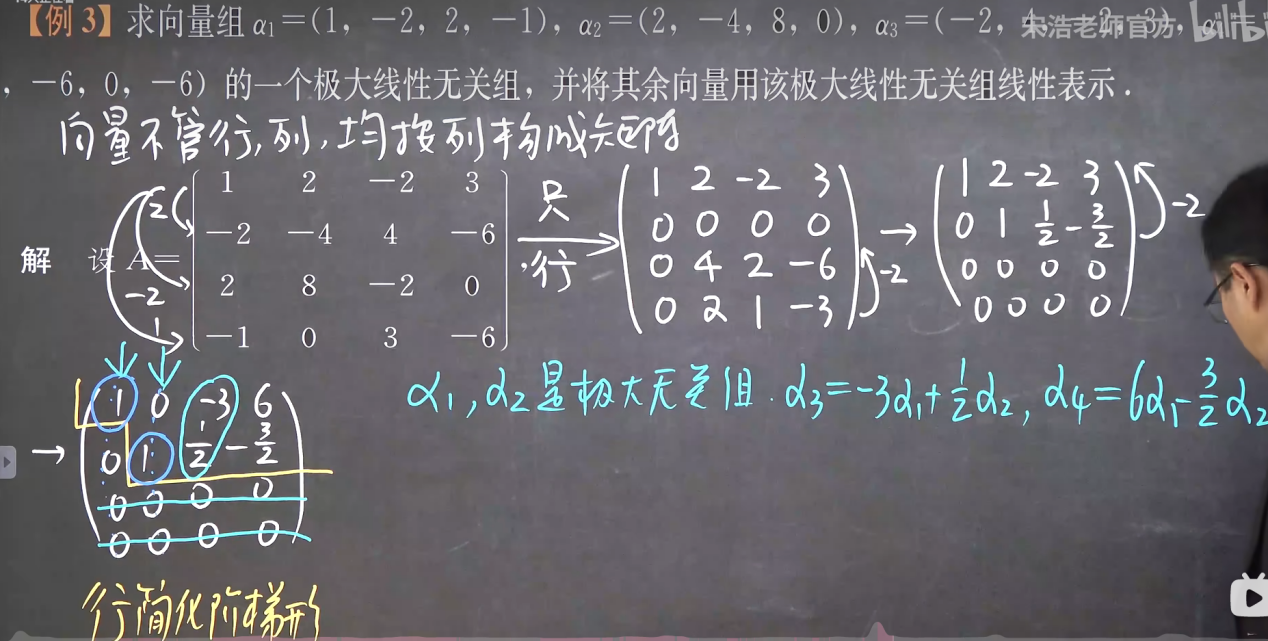 【例 3】求向量组 α₁=(1, −2, 2, −1), α₂=(2, −4, 8, 0), α₃=(−2, 4, −2, 3), α₄=
宋浩老师官方 bilibili
, −6, 0, −6) 的一个极大线性无关组, 并将其余向量用该极大线性无关组线性表示.
向量不管行,列,均按列构成矩阵
解 设 A=
1 2 −2 3
−2 −4 4 −6
2 8 −2 0
−1 0 3 −6
2
−2
1
只
行
1 2 −2 3
0 0 0 0
0 4 2 −6
0 2 1 −3
−2
→
1 2 −2 3
0 1 1/2 −3/2
0 0 0 0
0 0 0 0
−2
→
1 0 −3 6
0 1 1/2 −3/2
0 0 0 0
0 0 0 0
α₁,α₂是极大无关组. α₃=−3α₁+1/2α₂, α₄=6α₁−3/2α₂
行简化阶梯形